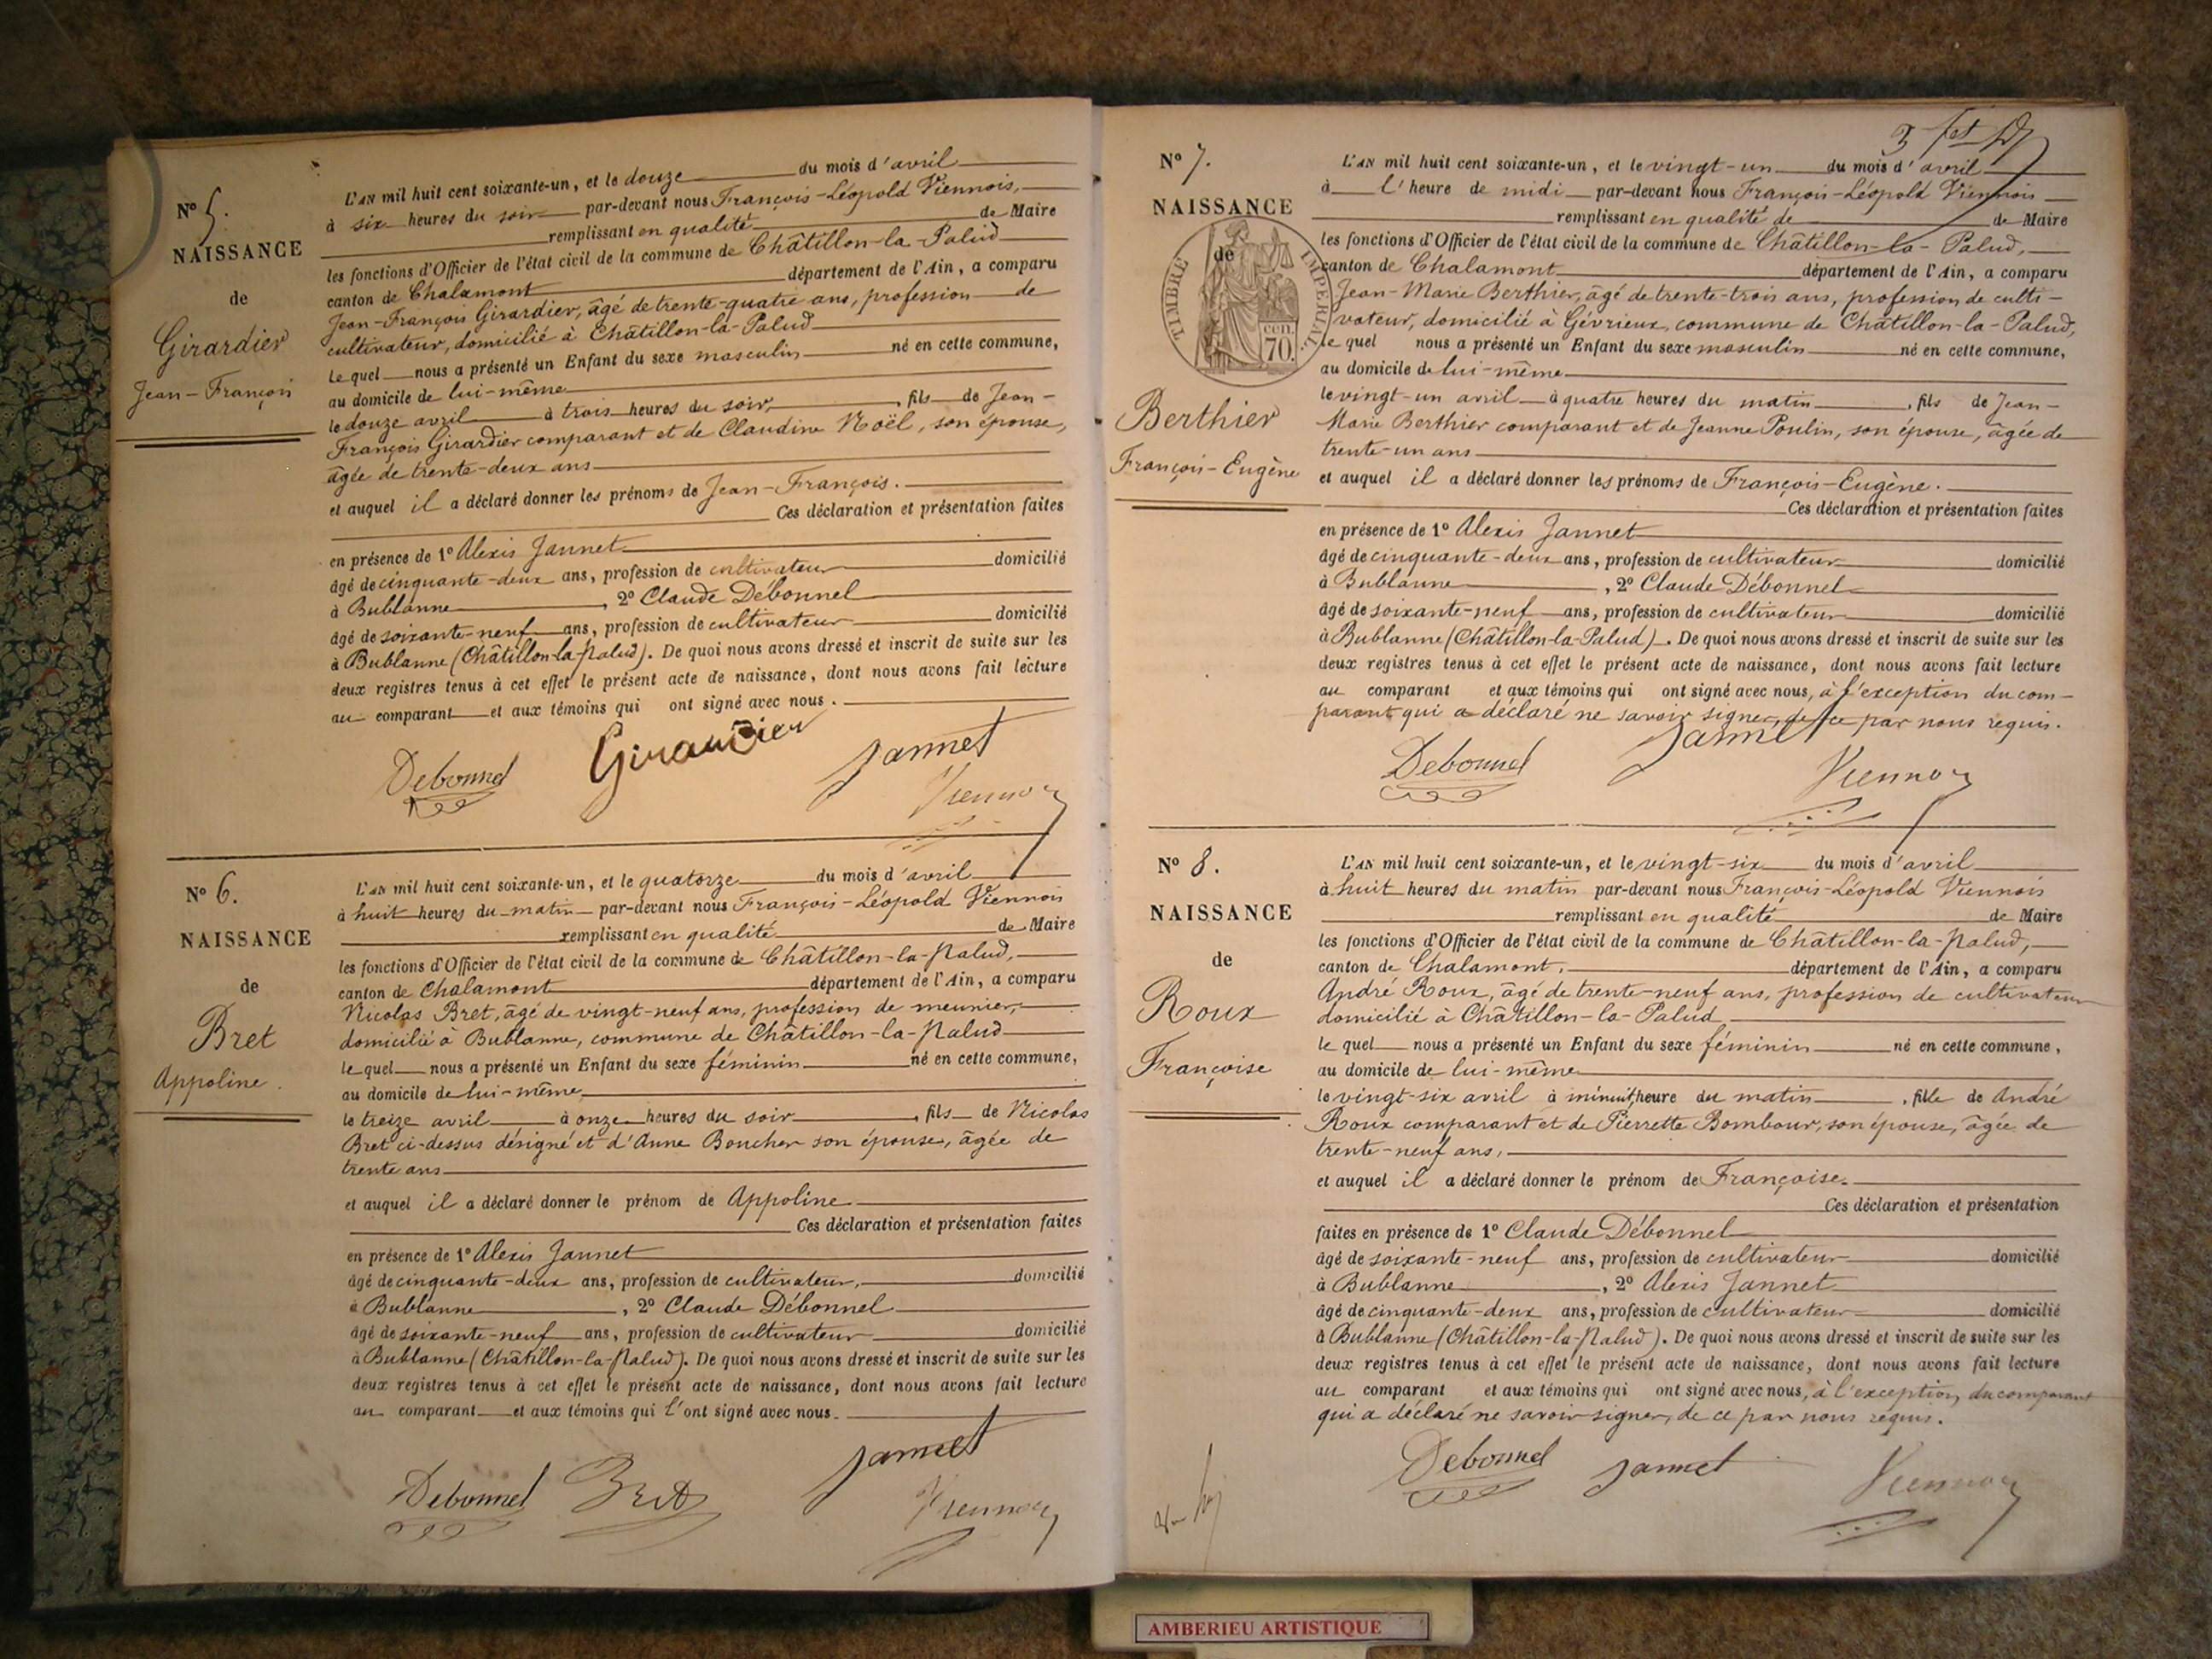 N° 5.
NAISSANCE
de
Girardier
Jean-François
L'AN mil huit cent soixante-un, et le douze du mois d'avril
à six heures du soir par-devant nous François-Léopold Viennois,
remplissant en qualité de Maire
les fonctions d'Officier de l'état civil de la commune de Châtillon-la-Palud
canton de Chalamont département de l'Ain, a comparu
Jean-François Girardier, âgé de trente-quatre ans, profession de
cultivateur, domicilié à Châtillon-la-Palud
le quel nous a présenté un Enfant du sexe masculin né en cette commune,
au domicile de lui-même
le douze avril à trois heures du soir, fils de Jean-
François Girardier comparant et de Claudine Noël, son épouse,
âgée de trente-deux ans
et auquel il a déclaré donner les prénoms de Jean-François.
Ces déclaration et présentation faites
en présence de 1° Alexis Jannet
âgé de cinquante-deux ans, profession de cultivateur domicilié
à Bublanne, 2° Claude Débonnel
âgé de soixante-neuf ans, profession de cultivateur domicilié
à Bublanne (Châtillon-la-Palud). De quoi nous avons dressé et inscrit de suite sur les
deux registres tenus à cet effet le présent acte de naissance, dont nous avons fait lecture
au comparant et aux témoins qui ont signé avec nous.
Debonnel Girardier Jannet
Viennois
N° 6.
NAISSANCE
de
Bret
Appoline.
L'AN mil huit cent soixante-un, et le quatorze du mois d'avril
à huit heures du matin par-devant nous François-Léopold Viennois
remplissant en qualité de Maire
les fonctions d'Officier de l'état civil de la commune de Châtillon-la-Palud,
canton de Chalamont département de l'Ain, a comparu
Nicolas Bret, âgé de vingt-neuf ans, profession de meunier,
domicilié à Bublanne, commune de Châtillon-la-Palud
le quel nous a présenté un Enfant du sexe féminin né en cette commune,
au domicile de lui-même
le treize avril à onze heures du soir, fils de Nicolas
Bret ci-dessus désigné et d'Anne Boucher son épouse, âgée de
trente ans
et auquel il a déclaré donner le prénom de Appoline
Ces déclaration et présentation faites
en présence de 1° Alexis Jannet
âgé de cinquante-deux ans, profession de cultivateur, domicilié
à Bublanne, 2° Claude Débonnel
âgé de soixante-neuf ans, profession de cultivateur domicilié
à Bublanne (Châtillon-la-Palud). De quoi nous avons dressé et inscrit de suite sur les
deux registres tenus à cet effet le présent acte de naissance, dont nous avons fait lecture
au comparant et aux témoins qui l'ont signé avec nous.
Debonnel Bret Jannet
Viennois
N° 7.
NAISSANCE
de
TIMBRE IMPERIAL
cen.
70.
Berthier
François-Eugène
L'AN mil huit cent soixante-un, et le vingt-un du mois d'avril
à l'heure de midi par-devant nous François-Léopold Viennois
remplissant en qualité de de Maire
les fonctions d'Officier de l'état civil de la commune de Châtillon-la-Palud,
canton de Chalamont département de l'Ain, a comparu
Jean-Marie Berthier, âgé de trente-trois ans, profession de culti-
vateur, domicilié à Gévrieux, commune de Châtillon-la-Palud,
le quel nous a présenté un Enfant du sexe masculin né en cette commune,
au domicile de lui-même
le vingt-un avril à quatre heures du matin, fils de Jean-
Marie Berthier comparant et de Jeanne Poulin, son épouse, âgée de
trente-un ans
et auquel il a déclaré donner les prénoms de François-Eugène.
Ces déclaration et présentation faites
en présence de 1° Alexis Jannet
âgé de cinquante-deux ans, profession de cultivateur domicilié
à Bublanne, 2° Claude Débonnel
âgé de soixante-neuf ans, profession de cultivateur domicilié
à Bublanne (Châtillon-la-Palud). De quoi nous avons dressé et inscrit de suite sur les
deux registres tenus à cet effet le présent acte de naissance, dont nous avons fait lecture
au comparant et aux témoins qui ont signé avec nous, à l'exception du com-
parant qui a déclaré ne savoir signer, de ce par nous requis.
Debonnel Jannet
Viennois
N° 8.
NAISSANCE
de
Roux
Françoise
L'AN mil huit cent soixante-un, et le vingt-six du mois d'avril
à huit heures du matin par-devant nous François-Léopold Viennois
remplissant en qualité de Maire
les fonctions d'Officier de l'état civil de la commune de Châtillon-la-Palud,
canton de Chalamont, département de l'Ain, a comparu
André Roux, âgé de trente-neuf ans, profession de cultivateur
domicilié à Châtillon-la-Palud
le quel nous a présenté un Enfant du sexe féminin né en cette commune,
au domicile de lui-même
le vingt-six avril à minuit heure du matin, fille de André
Roux comparant et de Pierrette Bombour, son épouse, âgée de
trente-neuf ans,
et auquel il a déclaré donner le prénom de Françoise.
Ces déclaration et présentation
faites en présence de 1° Claude Débonnel
âgé de soixante-neuf ans, profession de cultivateur domicilié
à Bublanne, 2° Alexis Jannet
âgé de cinquante-deux ans, profession de cultivateur domicilié
à Bublanne (Châtillon-la-Palud). De quoi nous avons dressé et inscrit de suite sur les
deux registres tenus à cet effet le présent acte de naissance, dont nous avons fait lecture
au comparant et aux témoins qui ont signé avec nous, à l'exception du comparant
qui a déclaré ne savoir signer, de ce par nous requis.
Debonnel Jannet Viennois
AMBERIEU ARTISTIQUE